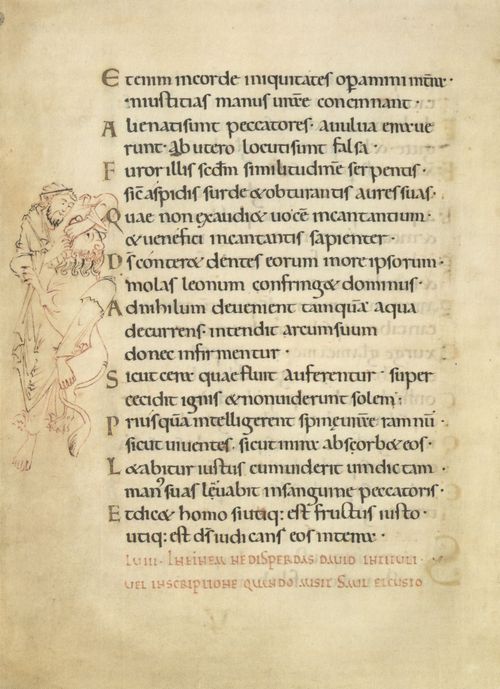 E tenim incorde iniquitates operamini interra ·
iniustitias manus uestre concinnant ·
A lienatisunt peccatores · auulua erraue
runt · Ab utero locutisunt falsa ·
F uror illis secundum similitudine serpentis ·
sic aspidis surde & obturantis aures suas ·
Q uae non exaudi& uoce incantantium ·
& uenefici incantantis sapienter ·
D s conter& dentes eorum inore ipsorum ·
molas leonum confring& dominus ·
A dnihilum deuenient tamquā aqua
decurrens · intendit arcumsuum
donec infirmentur ·
S icut cera quaefluit auferentur · super
cecidit ignis & nonuiderunt solem ;
P riusquā intelligerent spine uestre ramnū ·
sicut uiuentes · sicut inira absorb& eos ·
L &abitur iustus cumuiderit uindictam ·
man suas leuabit insanguine peccatoris ·
E tdic& homo siutiq: est fructus iusto ·
utiq: est ds iudicans eos interra ·
LVIII · INFINEM NE DISPERDAS DAVID INTITULI ·
VEL INSCRIPTIONE QUANDO MISIT SAUL ET CUSTO